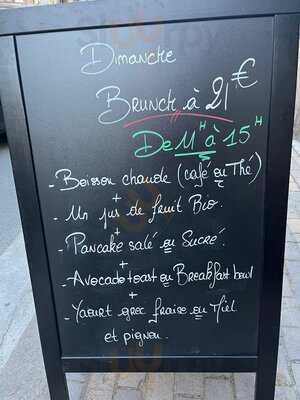 Dimanche
Brunch à 21 €
De 11H à 15H
- Boisson chaude (café ou Thé)
+
- Un jus de fruit Bio.
+
- Pancake salé ou Sucré.
+
- Avocado toast ou Breakfast bowl
+
- Yaourt grec fraise ou Miel
et pignon.